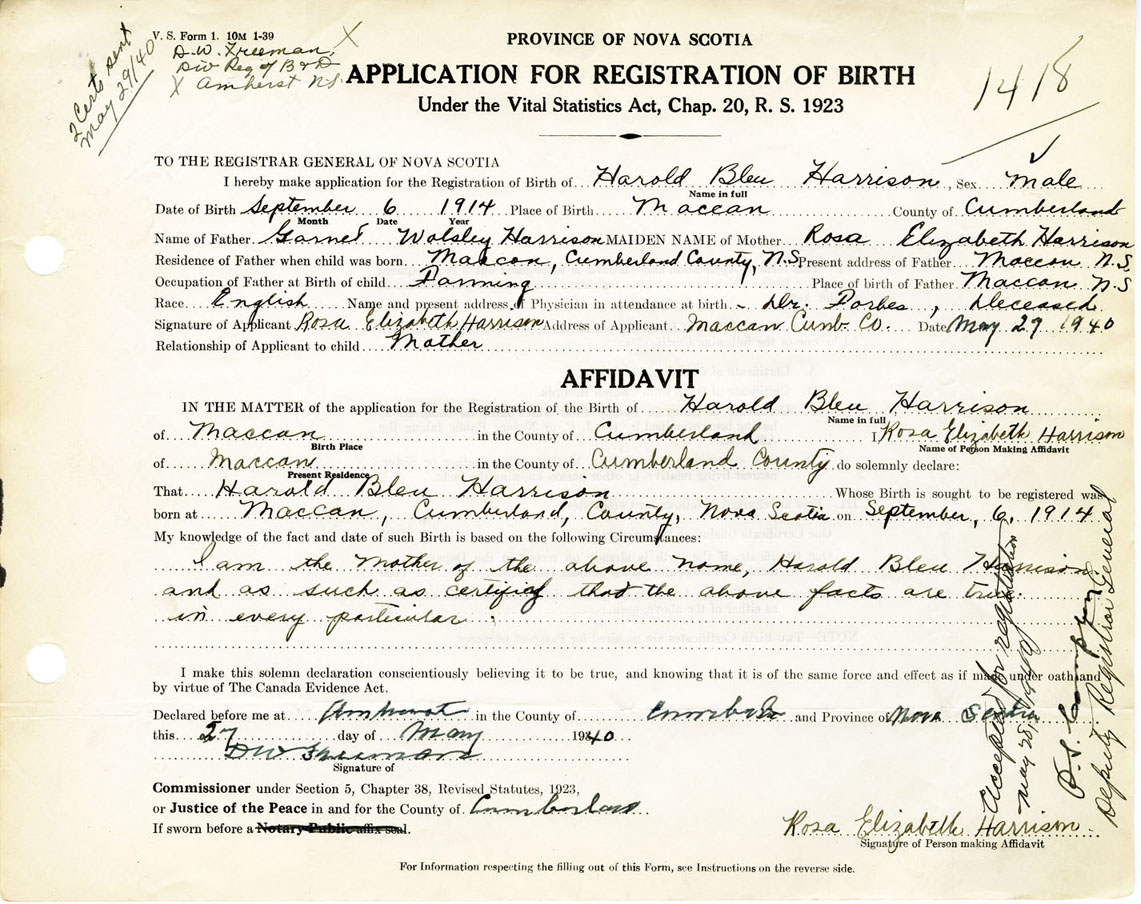 V. S. Form 1. 10M 1-39
D.W. Freeman, X
Div Reg of B & D
X Amherst NS.
2 Certs sent
May 29/40
PROVINCE OF NOVA SCOTIA
APPLICATION FOR REGISTRATION OF BIRTH
Under the Vital Statistics Act, Chap. 20, R. S. 1923
1418
TO THE REGISTRAR GENERAL OF NOVA SCOTIA
I hereby make application for the Registration of Birth of Harold Bleu Harrison, Sex Male
Name in full
Date of Birth September 6 1914 Place of Birth Maccan County of Cumberland
Month Date Year
Name of Father Garnet Wolsley Harrison MAIDEN NAME of Mother Rosa Elizabeth Harrison
Residence of Father when child was born Maccan, Cumberland County, N.S. Present address of Father Maccan N.S
Occupation of Father at Birth of child Farming Place of birth of Father Maccan N.S
Race English Name and present address of Physician in attendance at birth Dr. Forbes, Deceased
Signature of Applicant Rosa Elizabeth Harrison Address of Applicant Maccan Cumb. Co. Date May 27 1940
Relationship of Applicant to child Mother
AFFIDAVIT
IN THE MATTER of the application for the Registration of the Birth of Harold Bleu Harrison
Name in full
of Maccan in the County of Cumberland I Rosa Elizabeth Harrison
Birth Place Name of Person Making Affidavit
of Maccan in the County of Cumberland County do solemnly declare:
Present Residence
That Harold Bleu Harrison Whose Birth is sought to be registered was
born at Maccan, Cumberland, County, Nova Scotia on September, 6, 1914
My knowledge of the fact and date of such Birth is based on the following Circumstances:
I am the Mother of the above name, Harold Bleu Harrison
and as such as certify that the above facts are true
in every particular.
I make this solemn declaration conscientiously believing it to be true, and knowing that it is of the same force and effect as if made under oath and
by virtue of The Canada Evidence Act.
Declared before me at Amherst in the County of Cumberland and Province of Nova Scotia
this 27 day of May 1940
DW Freeman
Signature of
Commissioner under Section 5, Chapter 38, Revised Statutes, 1923,
or Justice of the Peace in and for the County of Cumberland
If sworn before a Notary Public affix seal.
Rosa Elizabeth Harrison
Signature of Person making Affidavit
Accepted for registration
May 28, 1940
Deputy Registrar General
For Information respecting the filling out of this Form, see Instructions on the reverse side.